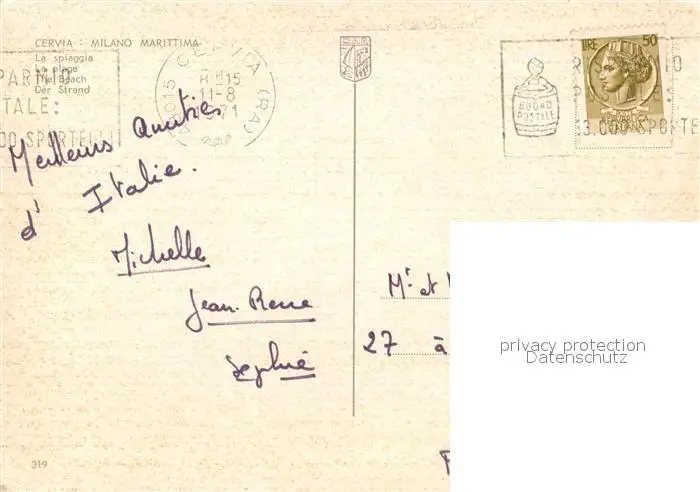 CERVIA - MILANO MARITTIMA
La spiaggia
La plage
The Beach
Der Strand
TALE:
CERVIA (RA)
H 15
11-8
71
BUONO
POSTALE
LIRE 50
Meilleurs amitiés
d' Italie.
Michelle
Jean. Pierre
Sophie
Mr et
27 à
privacy protection
Datenschutz
319